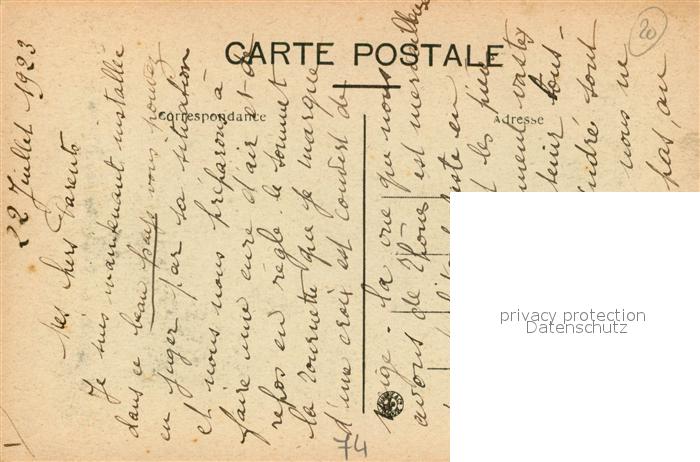 CARTE POSTALE
Correspondance
Adresse
20
22 Juillet 1923
Mes chers Parents
Je suis maintenant installée
dans ce beau pays vous pouvez
en juger par sa situation
et nous nous préparons à
faire une cure d'air et de
repos en règle. le sommet
la Tournette que je marque
d'une croix est couvert de
neige. La vue que nous
avons de Thônes est merveilleuse
en
les
vastes
tous-
sont
nous ne
pas, au
74
privacy protection
Datenschutz